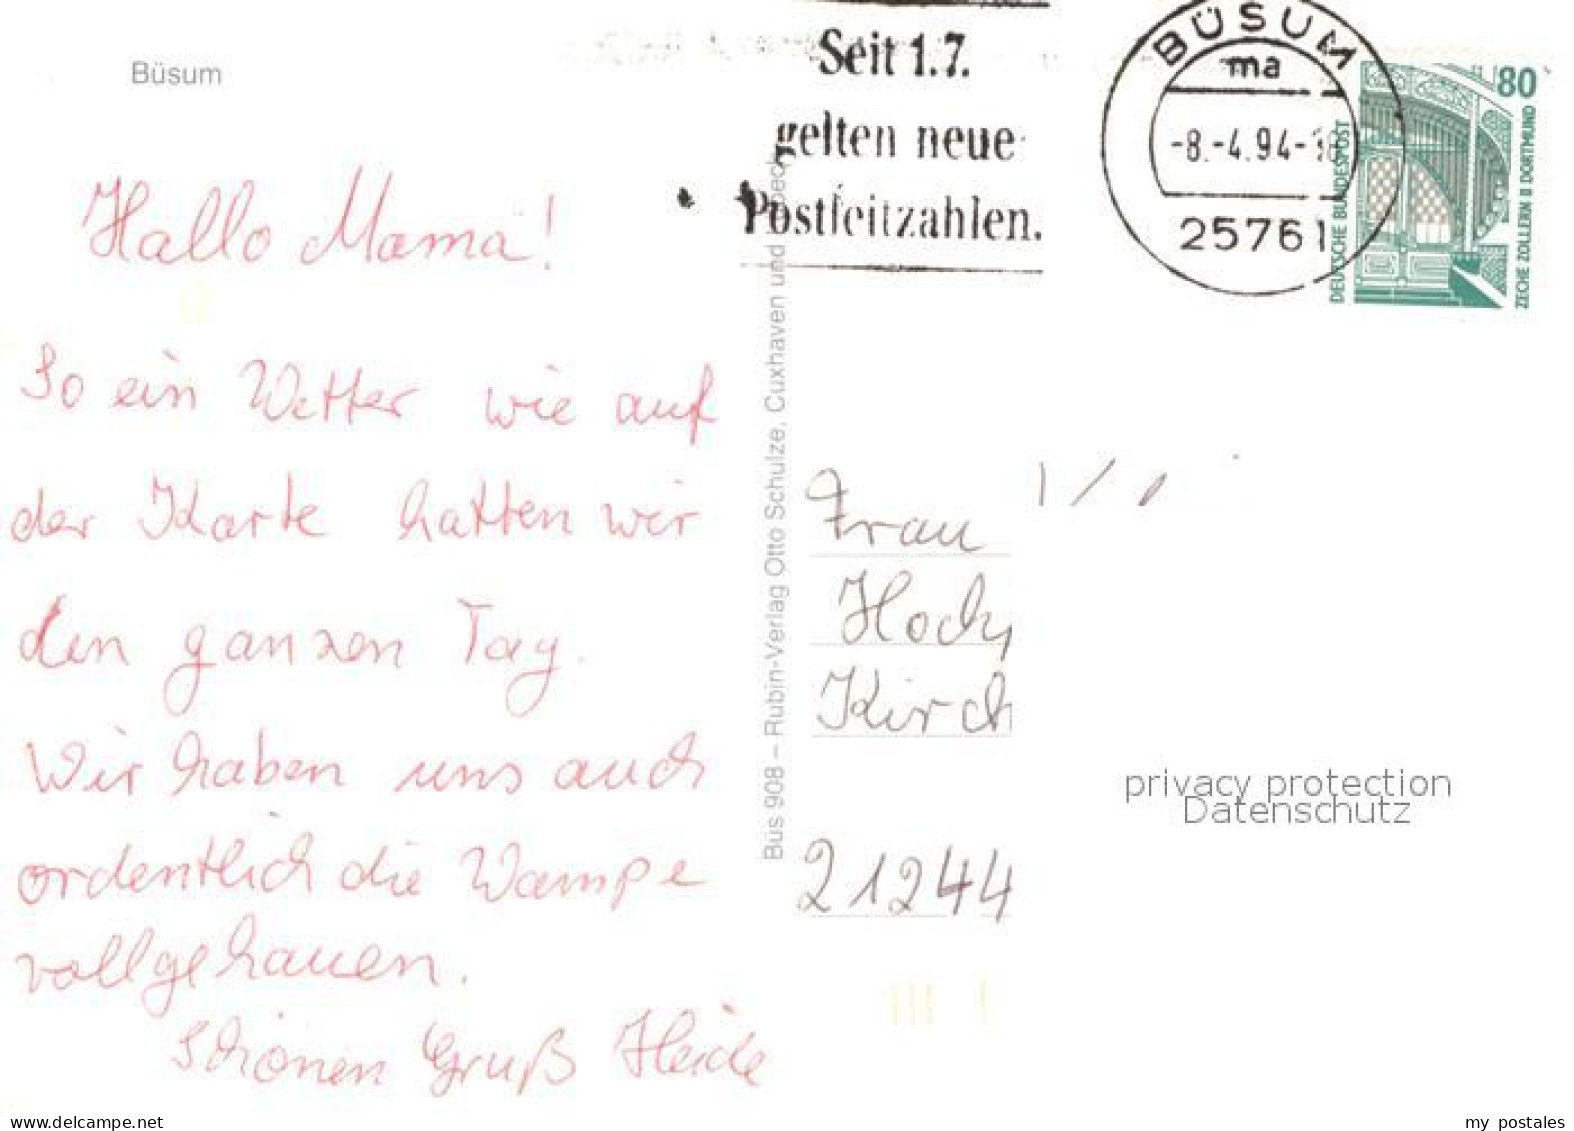 Büsum
Hallo Mama!
So ein Wetter wie auf
der Karte hatten wir
den ganzen Tag.
Wir haben uns auch
ordentlich die Wampe
vollgehauen.
Schönen Gruß Heide
Büs 908 – Rubin-Verlag Otto Schulze, Cuxhaven und
Seit 1.7.
gelten neue
Postleitzahlen.
BÜSUM
ma
-8.-4.94-
25761
80
DEUTSCHE BUNDESPOST
ZECHE ZOLLERN II DORTMUND
Frau
Kirch
21244
privacy protection
Datenschutz
www.delcampe.net
my_postales